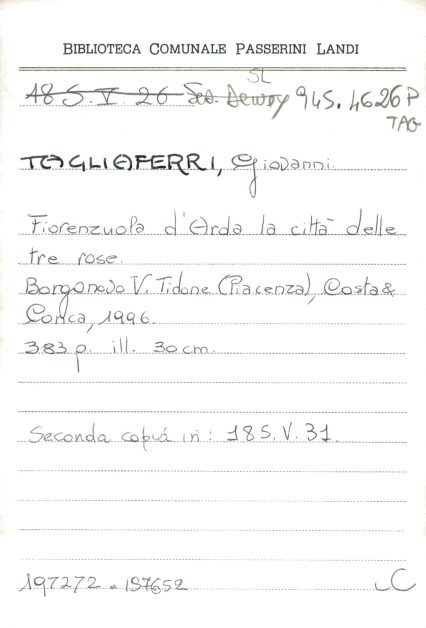 BIBLIOTECA COMUNALE PASSERINI LANDI
SL
18 S. V. 26 Sez. Dewey 945.4626 P
TAG
TAGLIAFERRI, Giovanni.
Fiorenzuola d'Arda la città delle
tre rose.
Borgonovo V. Tidone (Piacenza), Costa &
Conca, 1996.
383 p. ill. 30 cm.
Seconda copia in: 18 S. V. 31.
197272 - 197652